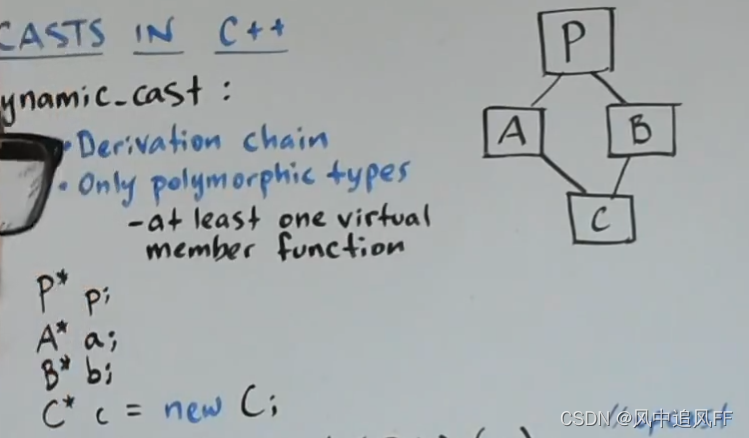 CASTS IN C++
ynamic_cast :
• Derivation chain
• Only polymorphic types
- at least one virtual
member function
P* p;
A* a;
B* b;
C* c = new C;
P
A
B
C
CSDN @风中追风FF